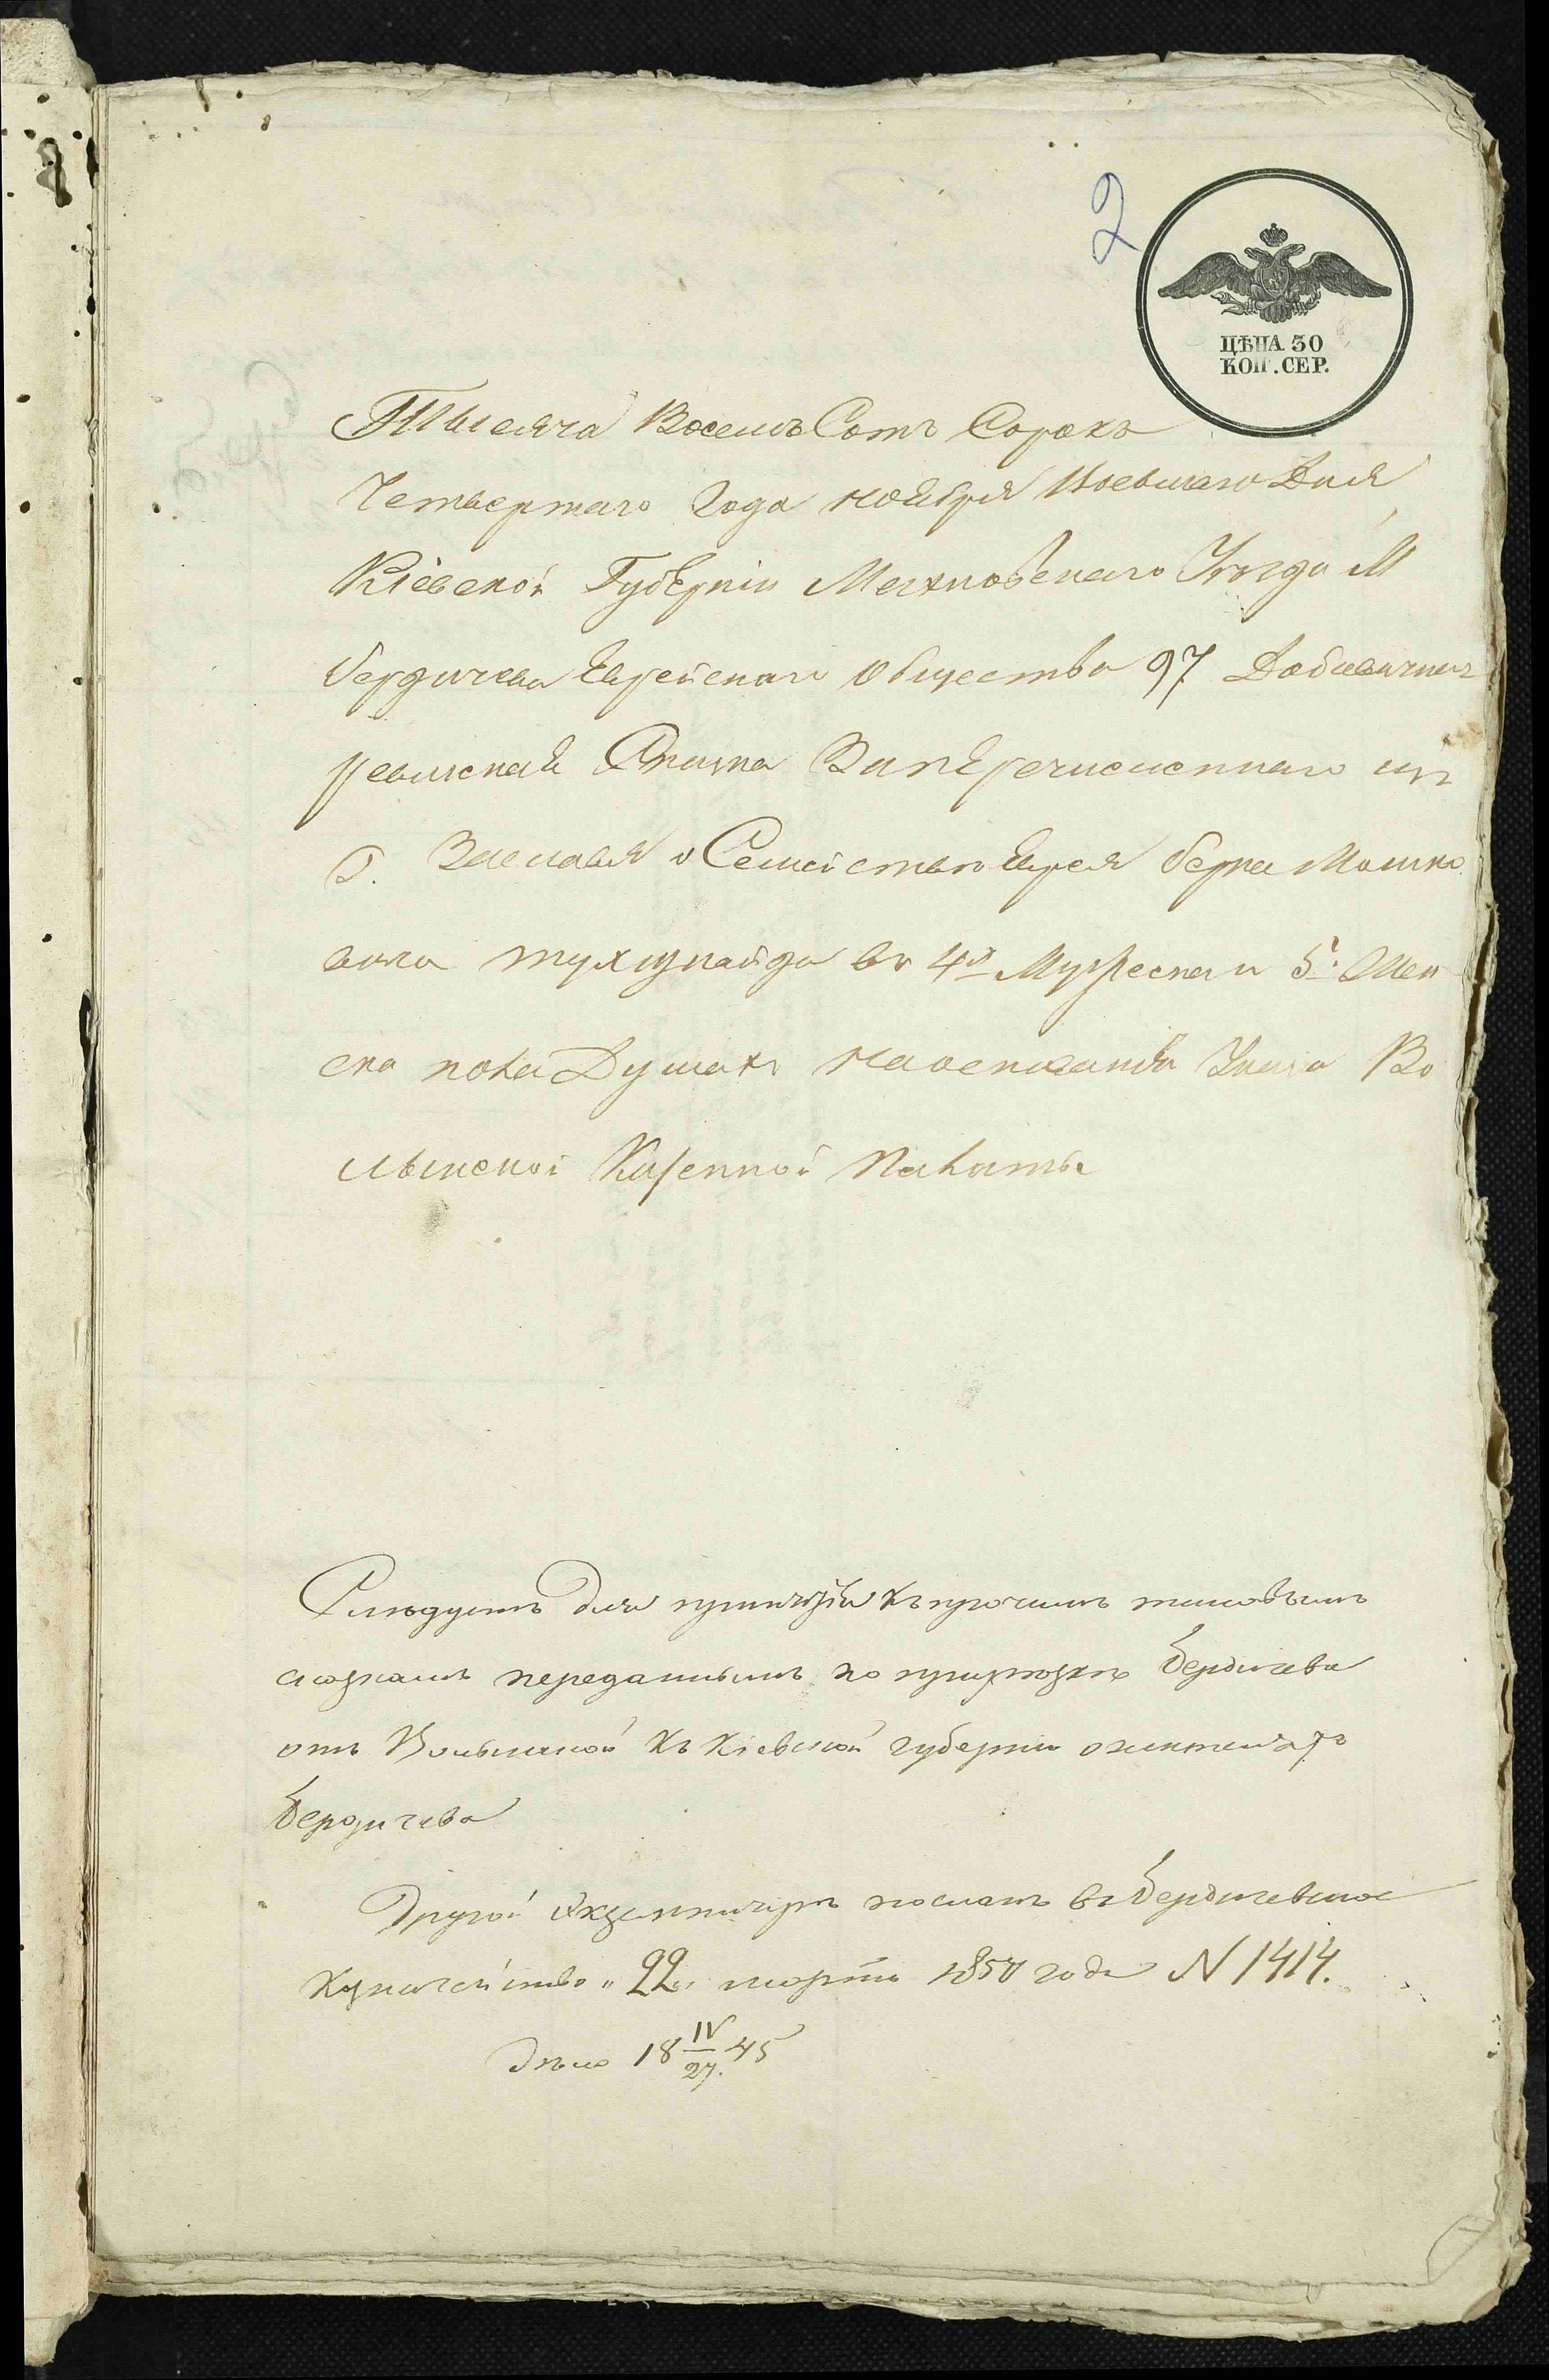 2
ЦѢНА 30
КОП. СЕР.
Тысяча Восемь Сотъ Сорокъ
Четвертаго Года ноября Дня
Кіевской Губерніи Махновскаго Уѣзда М
бердичева Еврейскаго Общества 97 Добавочная
ревизская Скаска Заперечисленнаго изъ
Г. Заславля о Семействѣ Еврея берка Мошко
вича въ 4х Мужеска и 5. Жен
ска пола Душахъ наоснованіи Указа Во
лынской Казенной Палаты
Слѣдуетъ для къ прочимъ таковымъ
сказкамъ переданнымъ по Бердичева
отъ Волынской къ Кіевской губерніи о жителяхъ
Бердичева
Другой экземпляръ посланъ въ Бердичевское
Казначейство „22„ марта 1850 года N 1414.
Дѣло 18 IV/27. 45